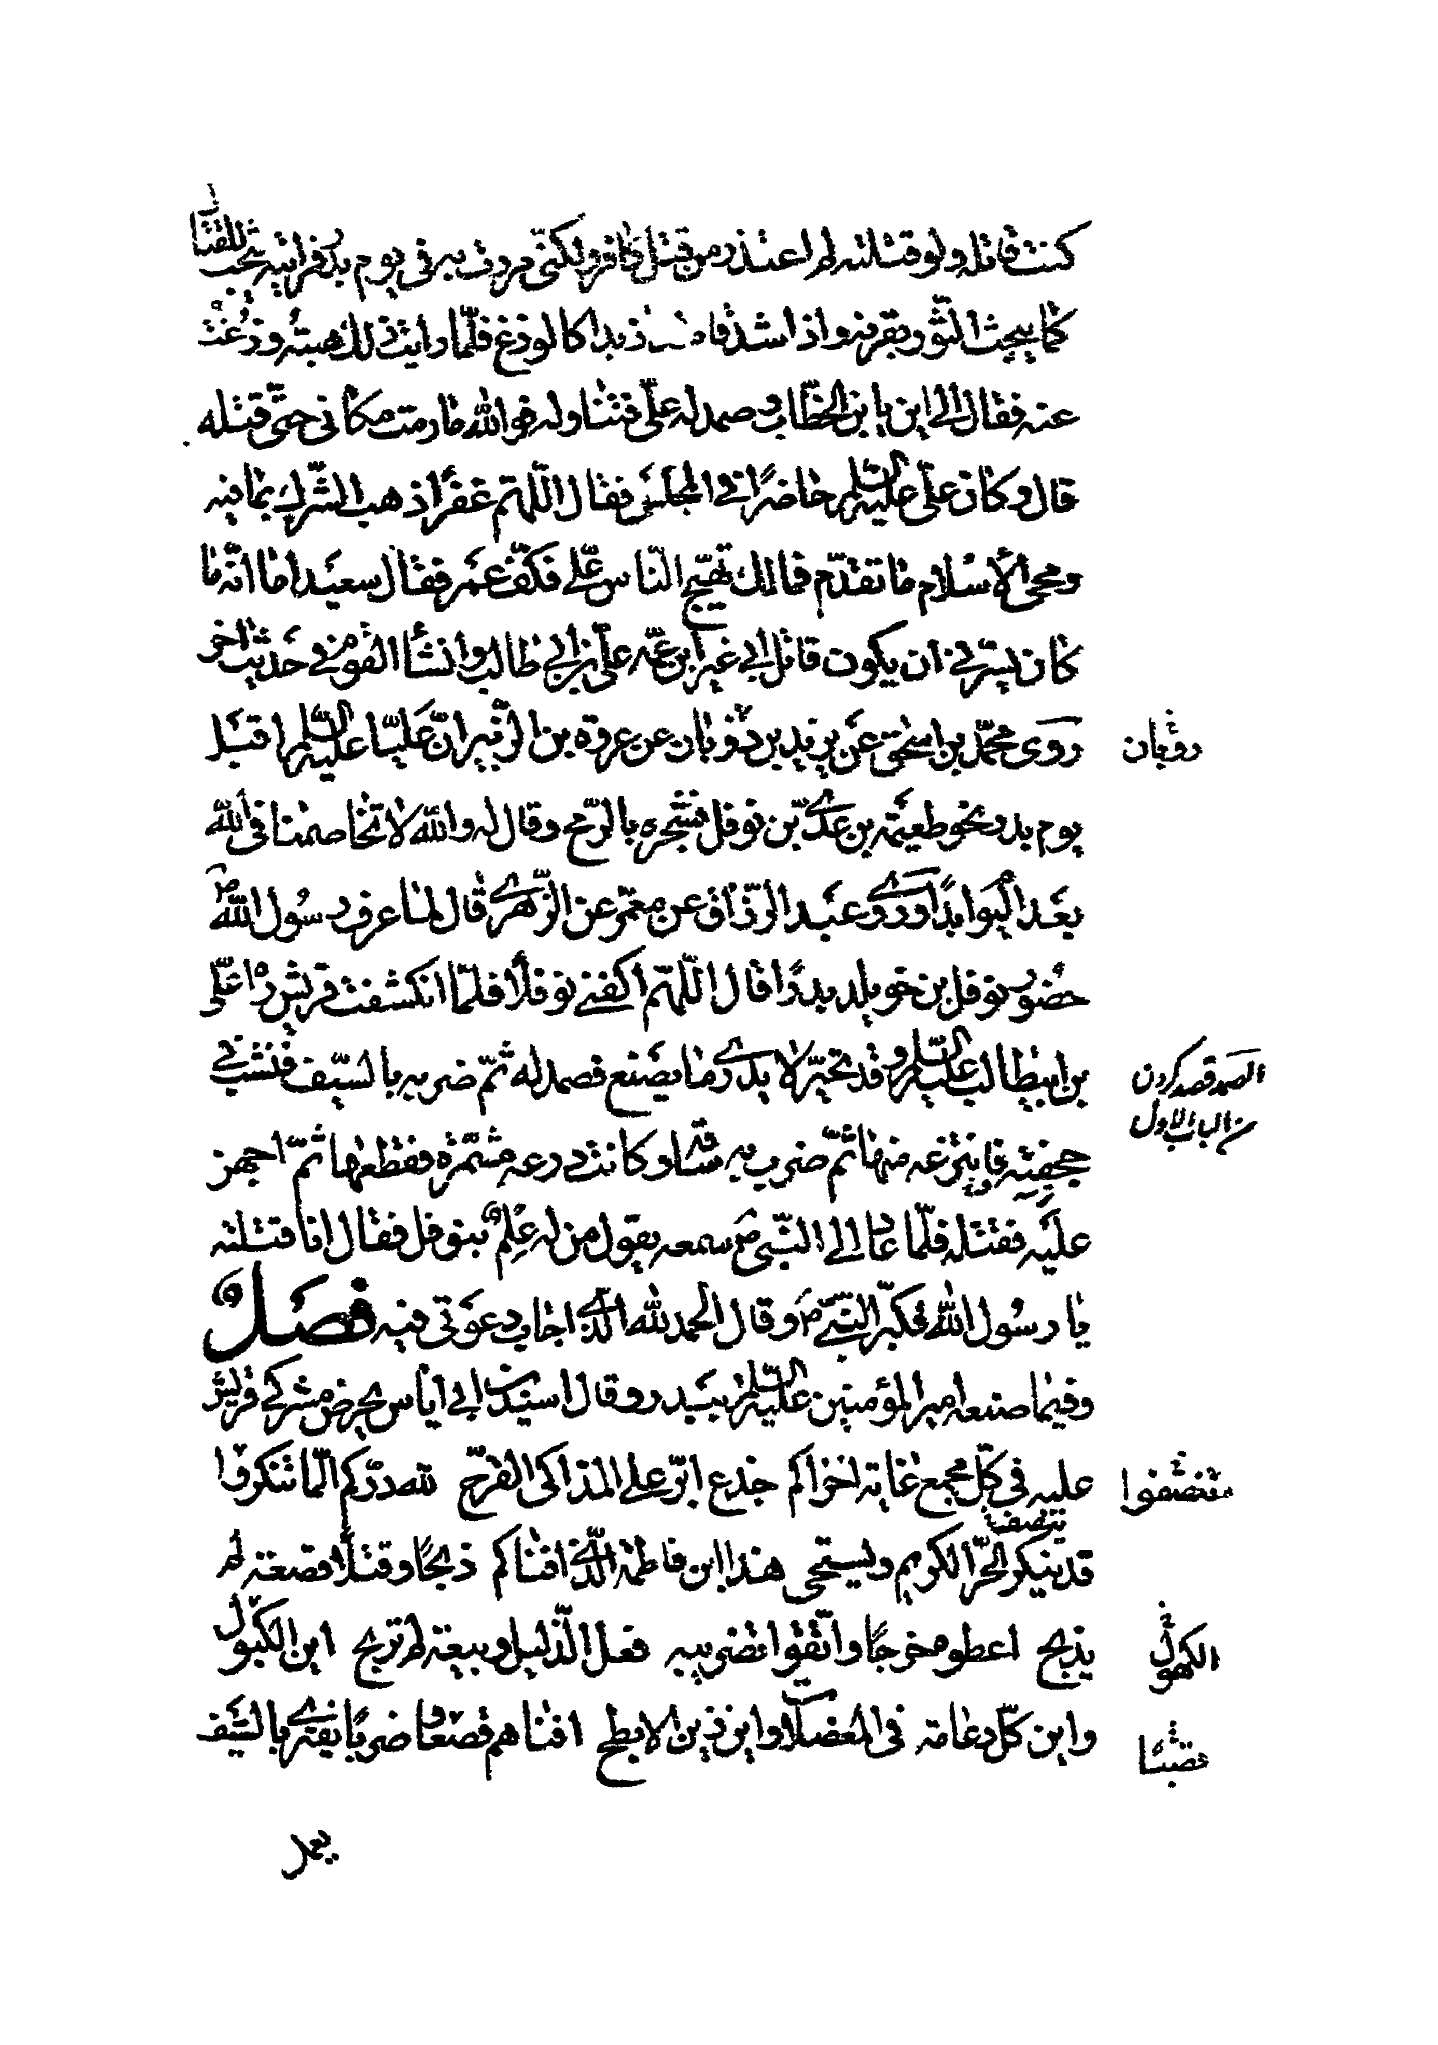 كنت قاتله ولو قتلته لم اعتذر من قتل كافر ولكنّى مررت به فى يوم بدر فرايته يبحث للقتال
كما يبحث الثّور بقرنه واذا شدقاه قد زبدا كالوزغ فلمّا رايت ذلك هبته وزغت
عنه فقال الى اين يا بن الخطّاب وصمد له علىّ فتناوله فوالله ما رمت مكانى حتّى قتله
قال وكان علىّ عليه السّلم حاضرًا فى المجلس فقال اللّهمّ غفرًا ذهب الشّرك بما فيه
ومحى الاسلام ما تقدّم فمالك تهيّج النّاس علىّ فكفّ عمر فقال سعيد اما انّه ما
كان يسرّنى ان يكون قاتل ابى غير ابن عمّه علىّ بن ابى طالب وانشأ القوم فى حديث اخر
روى محمّد بن اسحق عن يزيد بن رومان عن عروة بن الزّبير انّ عليّا عليه السّلم اقبل
رومان
يوم بدر نحو طعيمة بن عدىّ بن نوفل فشجره بالرّمح وقال له والله لا تخاصمنا فى الله
بعد اليوم ابدًا وروى عبد الرزّاق عن معمر عن الزّهرى قال لما عرف رسول الله ص
حضور نوفل بن خويلد بدرًا قال اللّهمّ اكفنى نوفلًا فلمّا انكشفت قريش راه علىّ
بن ابيطالب عليه السّلم وقد تحيّر لا يدرى ما يصنع فصمد له ثمّ ضربه بالسّيف فنشب فى
الصمد قصد كردن
من الباب الاول
حجفته فانتزعه منها ثمّ ضرب به ساقه وكانت درعه مشمّرة فقطعها ثمّ اجهز
عليه فقتله فلمّا عاد الى النّبىّ ص سمعه يقول من له علم بنوفل فقال انا قتلته
يا رسول الله فكبّر النّبىّ ص وقال الحمد لله الّذى اجاب دعوتى فيه فصل
وفيما صنعه امير المؤمنين عليه السّلم ببدر وقال اسيد بن ابى اياس يحرض مشركى قريش
عليه فى كلّ مجمع غاية اخزاكم جذع ابرّ على المذاكى القرّح لله درّكم المّا تنكروا
تنصفوا
قد ينكر الحرّ الكريم ويستحى هذا ابن فاطمة الّذى افناكم ذبحًا وقتلًا قصعة لم
يذبح اعطوه خرجًا واتّقوا تضريبه فعل الذّليل وبيعة لم تربح اين الكهول
الكهول
واين كلّ دعامة فى المعضلات واين زين الابطح افناهم قصعا وضربًا يفترى بالسّيف
قصبا
يعمل